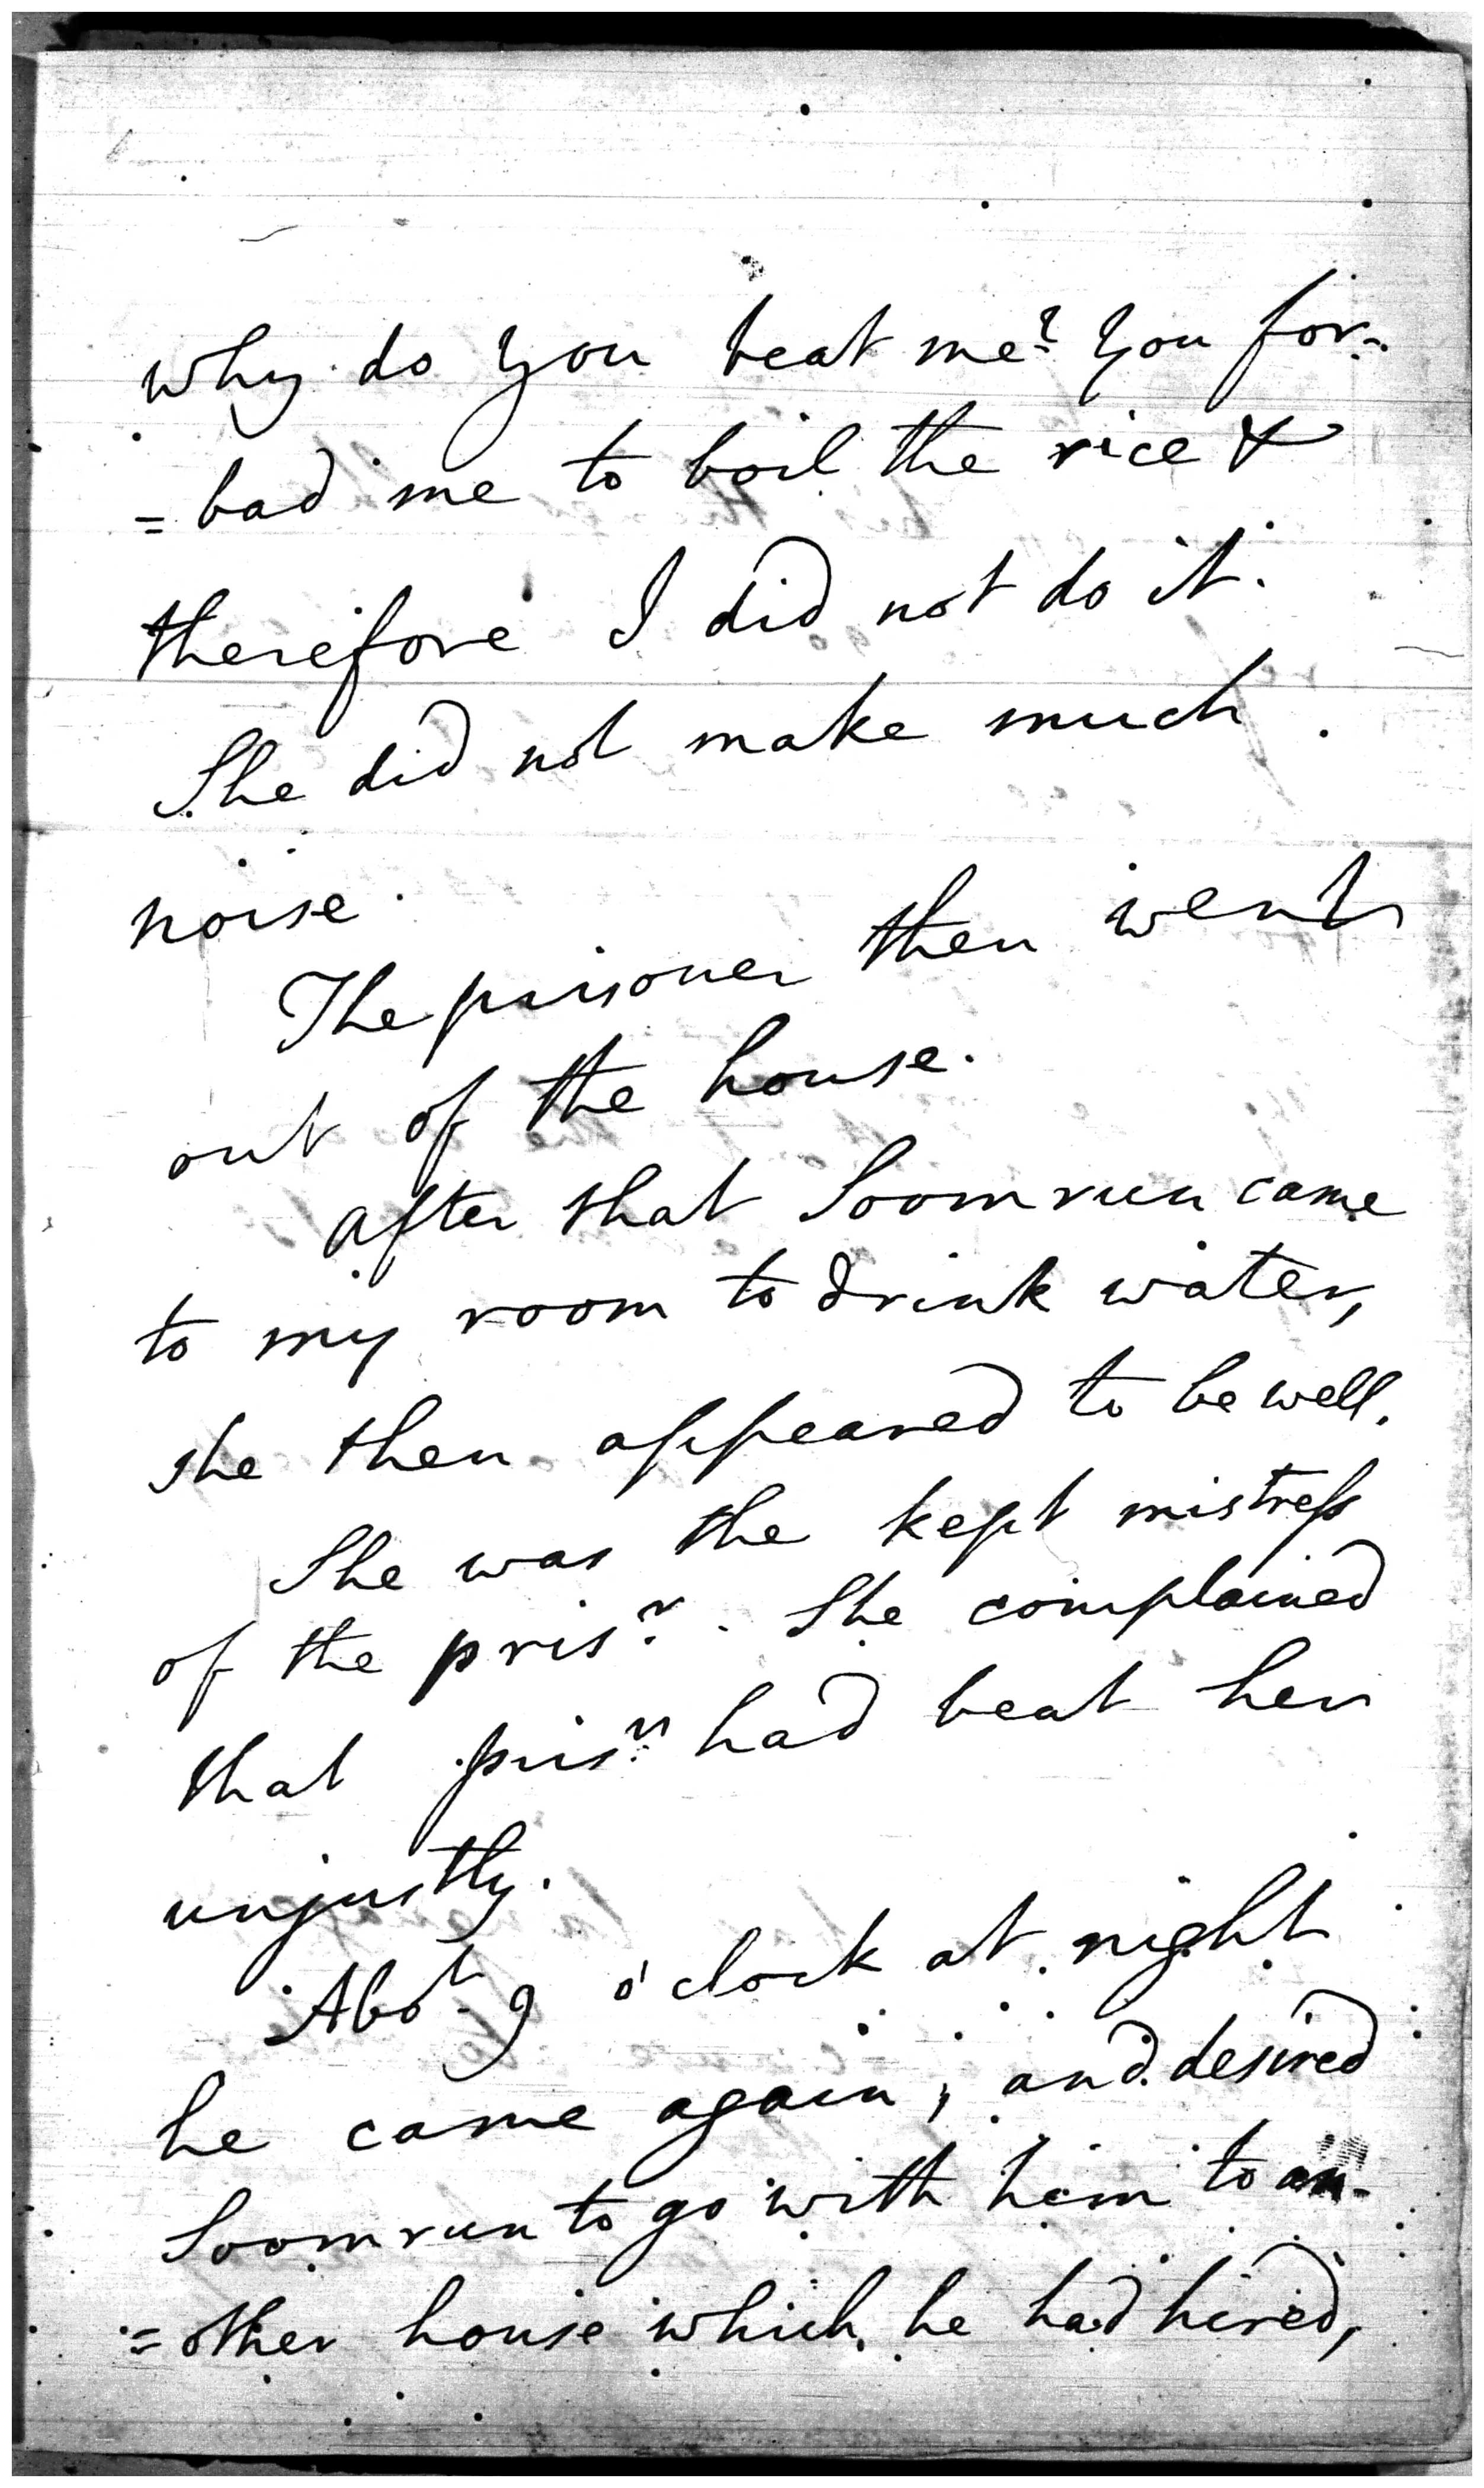 why do you beat me? you for-
=bad me to boil the rice &
therefore I did not do it.
She did not make much
noise.
The prisoner then went
out of the house.
after that Soomrun came
to my room to drink water,
she then appeared to be well.
She was the kept mistress
of the prisr. She complained
that prisr had beat her
unjustly.
Abot 9 o'clock at night
he came again, and desired
Soomrun to go with him to an-
=other house which he had hired,